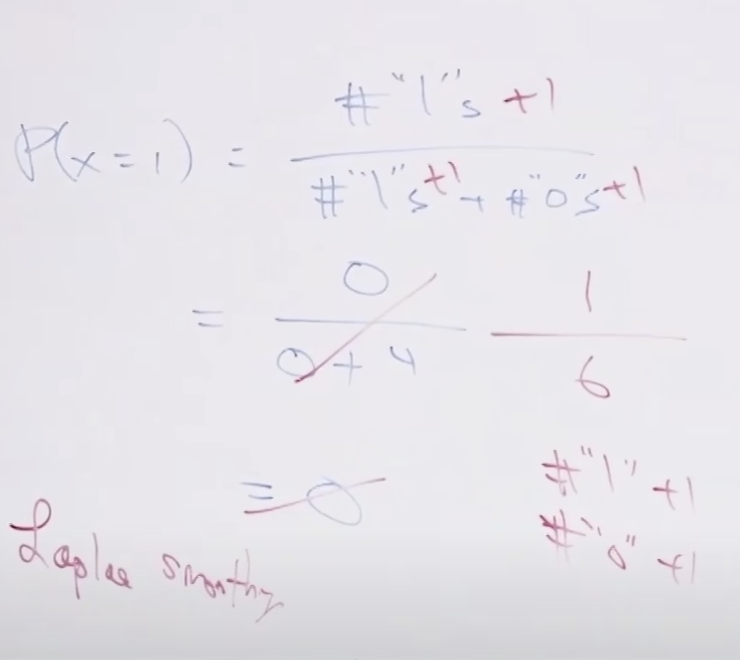 #"1"s +1
P(x=1) = ―――
#"1"s +1 + #"0"s +1
0 1
= ――― ―――
0 + 4 6
= 0 #"1" +1
#"0" +1
Laplace smoothing